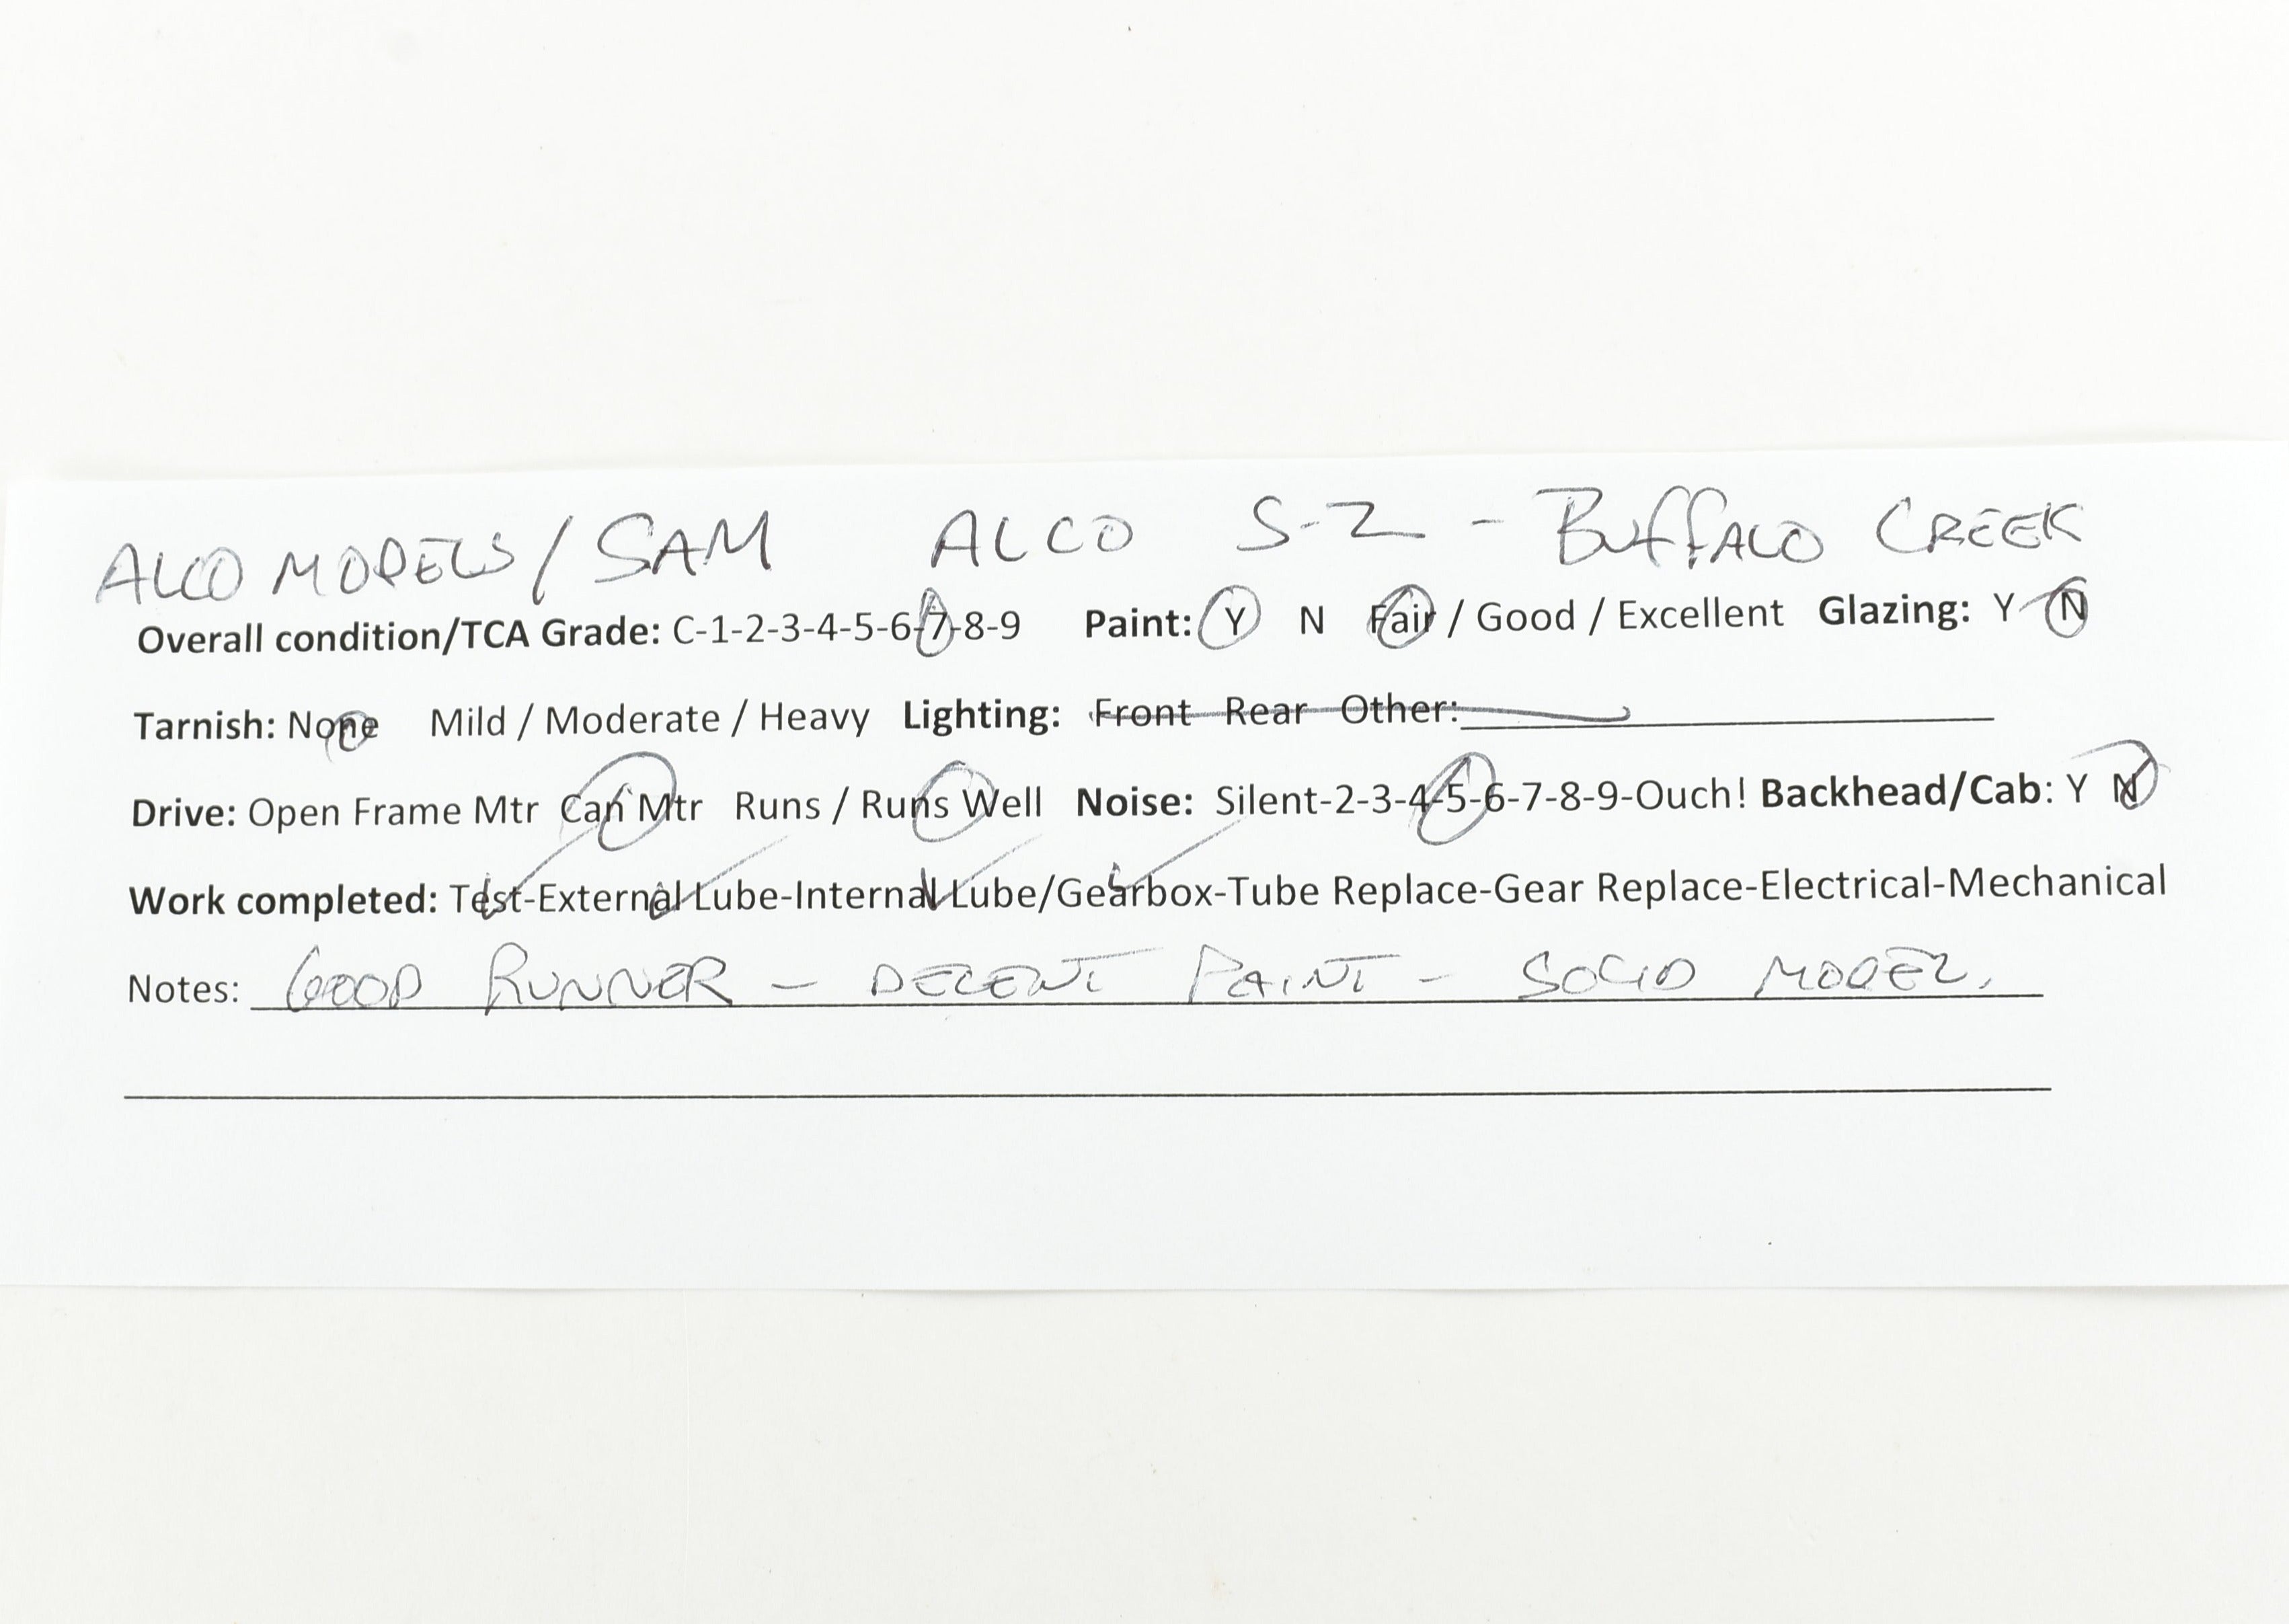 ALCO MODELS/SAM ALCO S-2 - BUFFALO CREEK
Overall condition/TCA Grade: C-1-2-3-4-5-6-7-8-9 Paint: Y N Fair / Good / Excellent Glazing: Y N
Tarnish: None Mild / Moderate / Heavy Lighting: Front Rear Other:
Drive: Open Frame Mtr Can Mtr Runs / Runs Well Noise: Silent-2-3-4-5-6-7-8-9-Ouch! Backhead/Cab: Y N
Work completed: Test-External Lube-Internal Lube/Gearbox-Tube Replace-Gear Replace-Electrical-Mechanical
Notes: GOOD RUNNER - DECENT PAINT - SOLID MODEL.